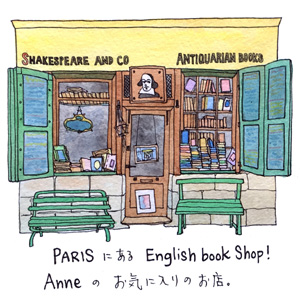 SHAKESPEARE AND CO ANTIQUARIAN BOOKS
PARIS にある English book Shop!
Anne の お気に入りのお店。